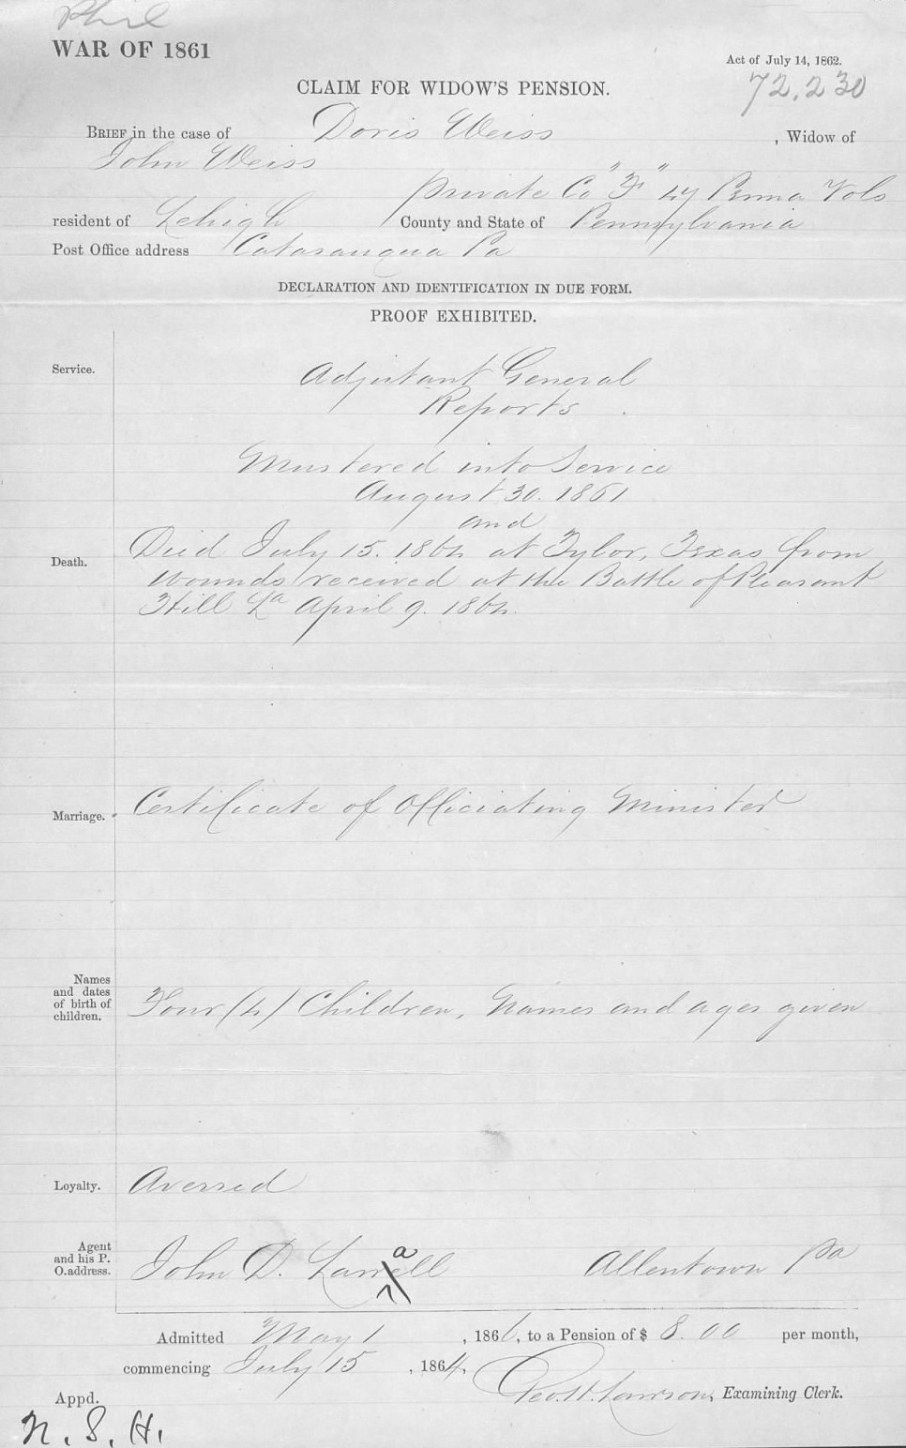 Phil
WAR OF 1861
Act of July 14, 1862.
72,230
CLAIM FOR WIDOW'S PENSION.
BRIEF in the case of Doris Weiss, Widow of
John Weiss
Private Co "F" 47 Penna Vols
resident of Lehigh County and State of Pennsylvania
Post Office address Catasauqua Pa
DECLARATION AND IDENTIFICATION IN DUE FORM.
PROOF EXHIBITED.
Service.
Adjutant General
Reports.
Mustered into Service
August 30. 1861
and
Death.
Died July 15. 1864 at Tyler, Texas from
wounds received at the Battle of Pleasant
Hill La April 9. 1864.
Marriage. Certificate of Officiating Minister
Names
and dates
of birth of
children.
Four (4) Children, Names and ages given
Loyalty. Averred
Agent
and his P.
O. address.
John D. Lawall Allentown Pa
Admitted May 1, 186, to a Pension of $ 8.00 per month,
commencing July 15, 1864,
Geo. H. Lawson, Examining Clerk.
Appd.
N. S. H.